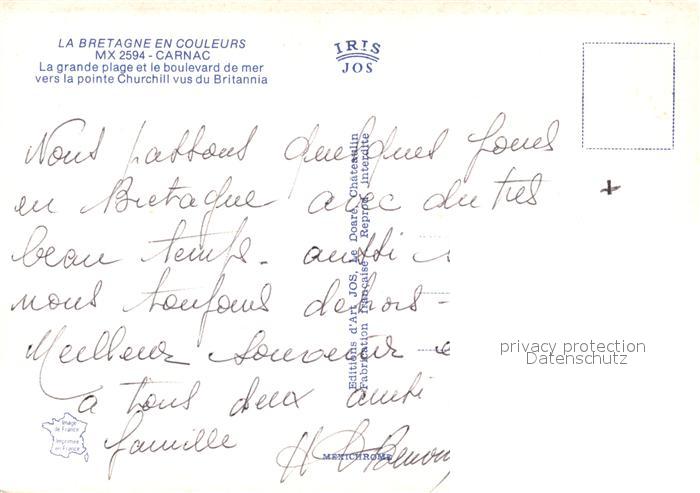 LA BRETAGNE EN COULEURS
MX 2594 - CARNAC
La grande plage et le boulevard de mer
vers la pointe Churchill vus du Britannia
IRIS
JOS
Nous passons quelques jours
en Bretagne avec du très
beau temps - aussi
nous toujours dehors -
Meilleur souvenir
à tous deux
famille
Editions d'Art JOS, Le Doaré, Châteaulin
Fabrication française Reprod. interdite
privacy protection
Datenschutz
Image
de France
Imprimée
en France
MEXICHROME